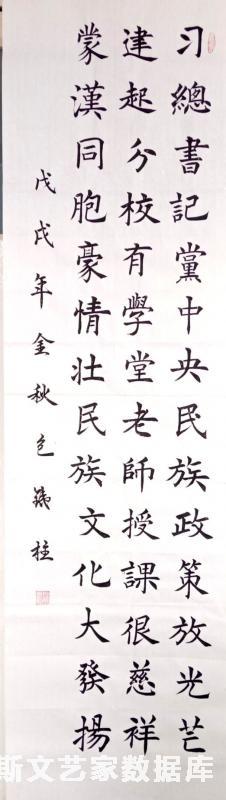 习總書記黨中央民族政策放光芒
建起分校有學堂老師授課很慈祥
蒙漢同胞豪情壮民族文化大發揚
戊戌年金秋包鐵柱
斯文艺家数据库